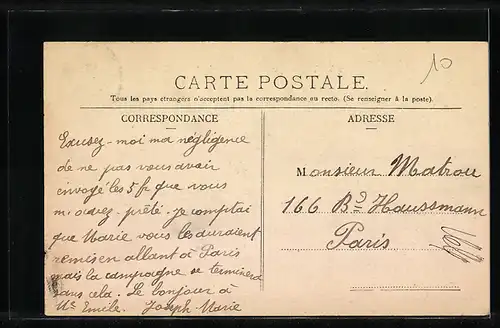 10
CARTE POSTALE.
Tous les pays étrangers n'acceptent pas la correspondance au recto. (Se renseigner à la poste).
CORRESPONDANCE
Excusez-moi ma négligence
de ne pas vous avoir
envoyé les 5 fr que vous
m'avez prêté. je comptai
que Marie vous les auraient
remis en allant à Paris
mais la campagne se terminera
sans cela. Le bonjour à
Mr Emile. Joseph-Marie
ADRESSE
Monsieur Matrou
166 Bd Haussmann
Paris